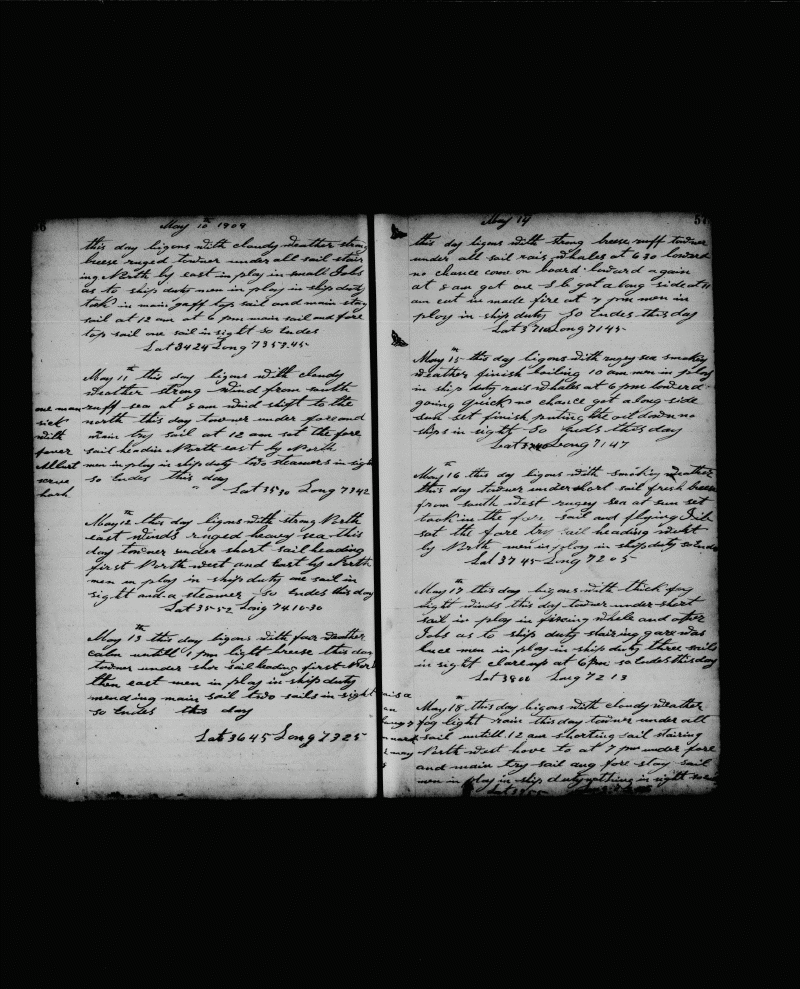 May 10th 1909
this day ligons with cloudy weather strong
breese ruged towner under all sail stair
ing North by east in play in small Jobs
as to ship duty men in play in ship duty
took in main gaff top sail and main stay
sail at 12 am at 6 pm main sail and fore
top sail one sail in sight so Endes
Lat 3424 Long 7353.45
May 11th this day ligons with cloudy
weather strong wind from south
ruff sea at 8 am wind shift to the
north this day towner under fore and
main try sail at 12 am sat the fore
sail headin North east by North
men in play in ship duty two steamers in sight
so Endes this day
Lat 3530 Long 7342
one man
sick
with
fever
Albert
May 12th this day ligons with strong North
east winds ruged heavey sea this
day towner under short sail heading
first North west and East by North
men in play in ship duty one sail in
sight and a steamer so Endes this day
Lat 35-52 Long 74.16-30
May 13th this day ligons with four weather
calm untill 1 pm light breese this day
towner under shor sail heading first North
then east men in play in ship duty
mending main sail two sails in sight
so Endes this day
Lat 3645 Long 7325
May 14 57
this day ligons with strong breese ruff towner
under all sail rais whales at 6 30 lowerd
no chance come on board lowerd again
at 8 am got one S b got along side at 11
am cut in made fire at 7 pm men in
play in ship duty So Endes this day
Lat 3710 Long 7145
May 15th this day ligons with rugey sea smokey
weather finish boiling 10 am men in play
in ship duty rais whales at 6 pm lowerd
going quick no chance got along side
sun set finish puting the oil down no
ships in sight So Ends this day
Lat Long 7147
May 16th this day ligons with smokey weather
this day towner under short sail fresh breese
from south west rugey sea at sun set
took in the fore sail and flying Jib
sat the fore try sail heading west
by North men in play in ship duty so Ends
Lat 3745 Long 7205
May 17th this day ligons with thick fog
light winds this day towner under short
sail in play in whale and other
Jobs as to ship duty stairing
men in play in ship duty three sails
in sight clarenp at 6 pm so Endes this day
Lat 3806 Long 7213
May 18th this day ligons with cloudy weather
fog light rain this day towner under all
sail untill 12 am shorting sail stairing
North west hove to at 7 pm under fore
and main try sail ang fore stay sail
men in play in ship duty nothing in sight